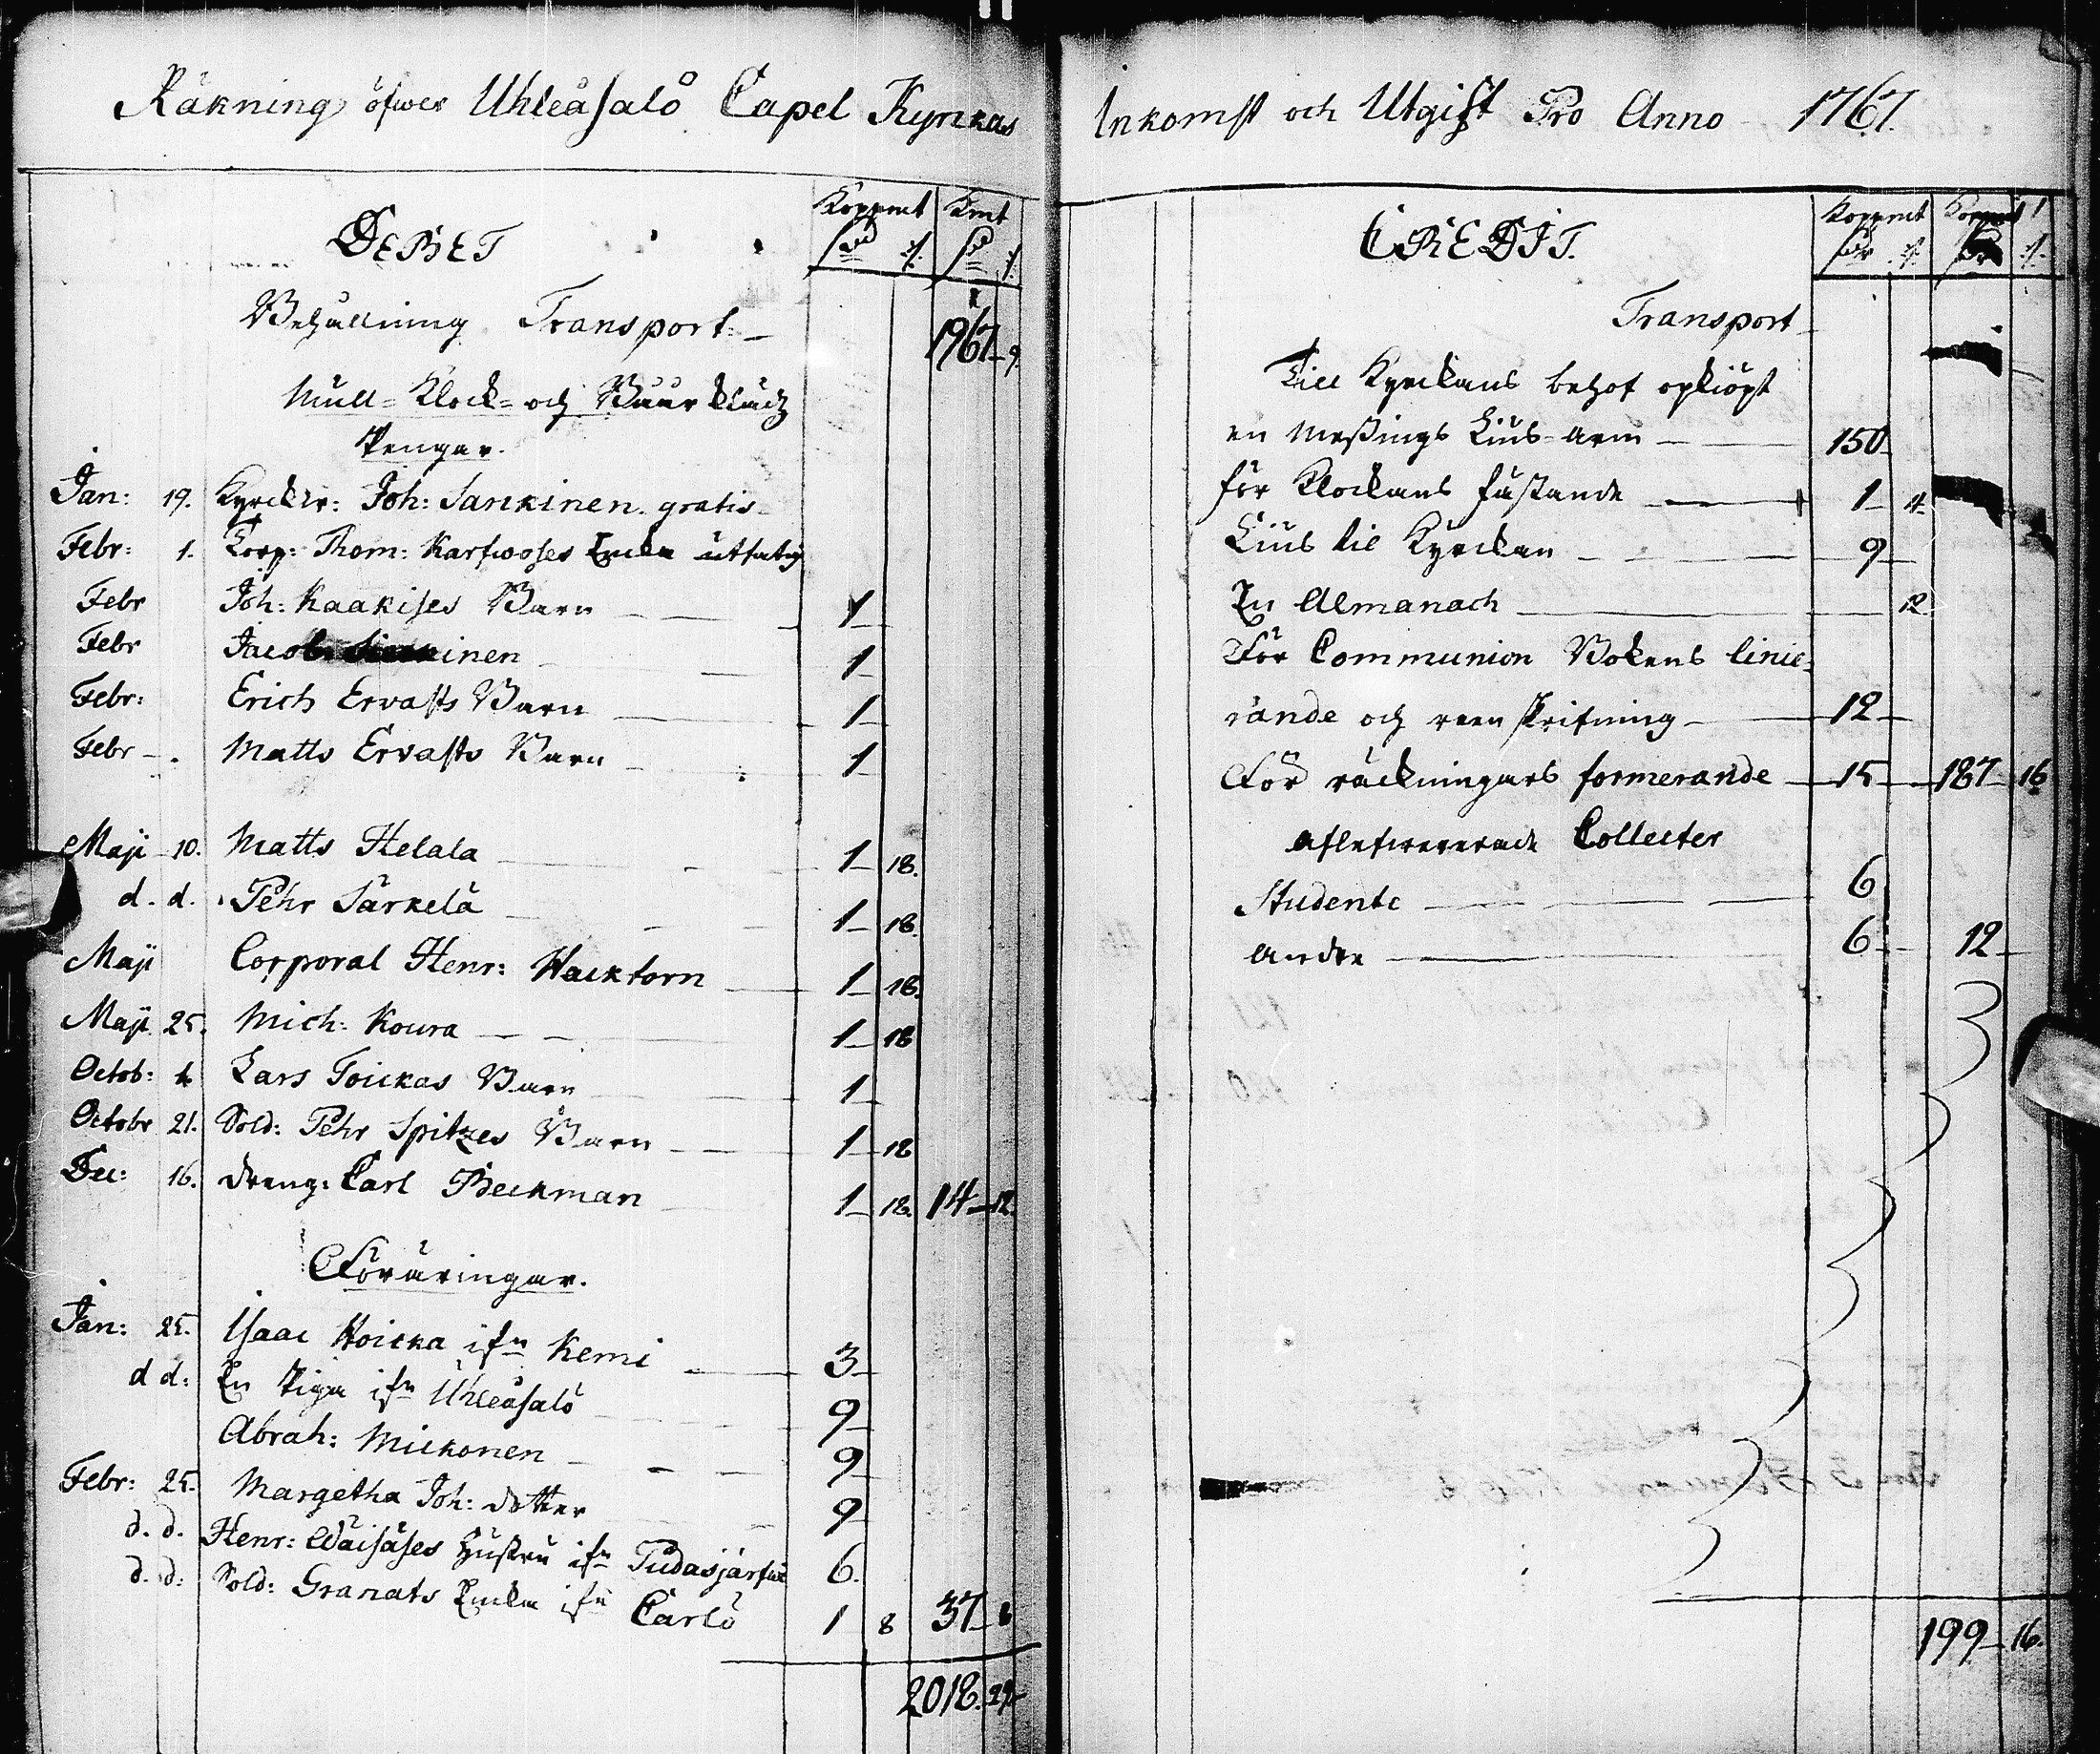 Räkning öfwer Uhleåsalo Capel Kyrckas
Inkomst och Utgift Pro Anno 1767.
DEBET
Koppmt Kmt
Behållning Transport 1967 9.
Mull= Klock= och Buur kläds
Pengar.
Jan: 19. Kyrckhr: Joh: Sarckinen. gratis
Febr: 1. Corp: Thom: Karfwoses Encka utfatig
Febr Joh: Kaakises Barn 1
Febr Jacob inen 1
Febr: Erich Ervasts Barn 1
Febr Matts Ervasts Barn 1
Maji 10. Matts Helala 1 18.
d. d. Pehr Särkelä 1 18.
Maji Corporal Henr: Wacktorn 1 18.
Maji 25. Mich: Koura 1 18
Octob: 4 Lars Toickas Barn 1
Octobr 21. Sold: Pehr Spitzes Barn 1 18
Dec: 16. dreng: Carl Beckman 1 18. 14 12.
Föräringar.
Jan: 25. Isaac Hoicka ifn Kemi 3
d d: En Piga ifn Uhleåsalo 9
Abrah: Mickonen 9
Febr: 25. Margetha Joh: dotter 9
d. d. Henr: Wäisäses hustru ifn Pudasjärfwi 6.
d. d: Sold: Granats Encka ifn Carlö 1 8 37 8
2018. 29
CREDIT.
Koppmt Koppmt
Transport
Till Kyrckans behof opkiöpt
en Messings Lius-arm 150
för Klockans fästande 1 4
Lius til Kyrckan 9
En Almanach 12
För Communion Bokens linie=
rande och reen skrifning 12
För räckningars formerande 15 187 16
aflefwererade Collecter
Studente 6
andre 6 12
199 16.